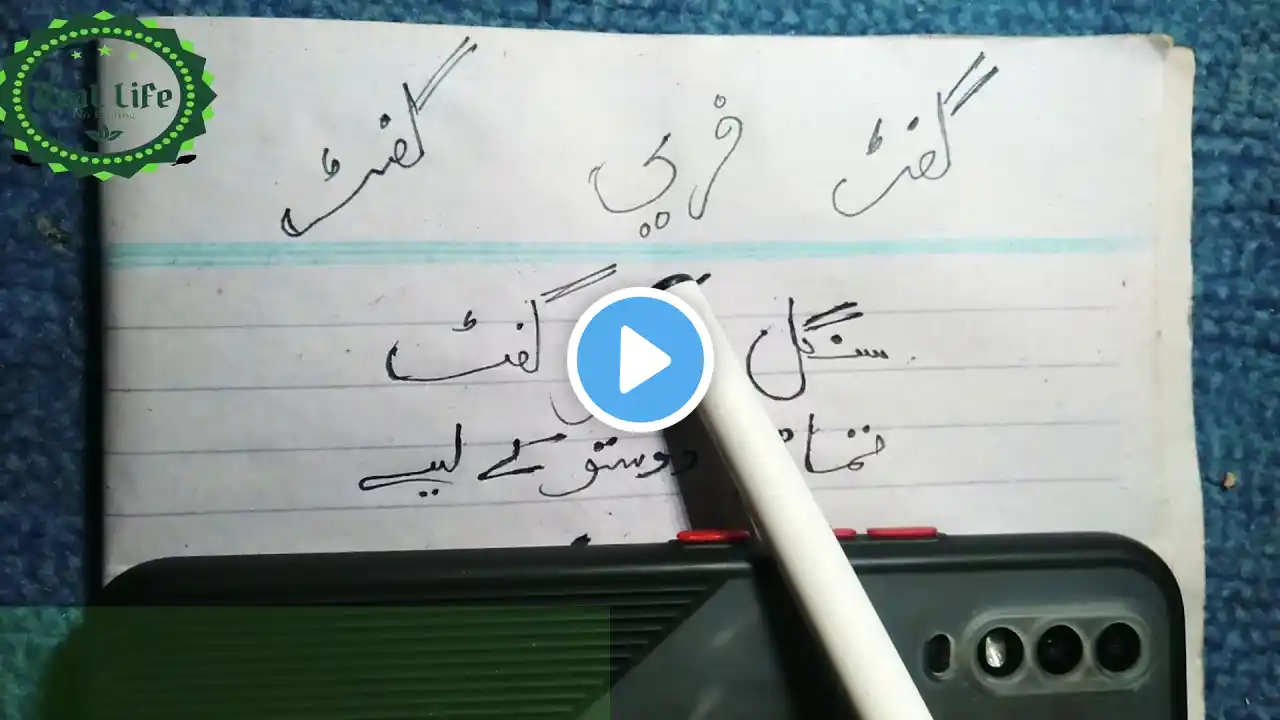 Real Life
گفٹ فری گفٹ
سنگل گفٹ
تمام دوستو کے لیے